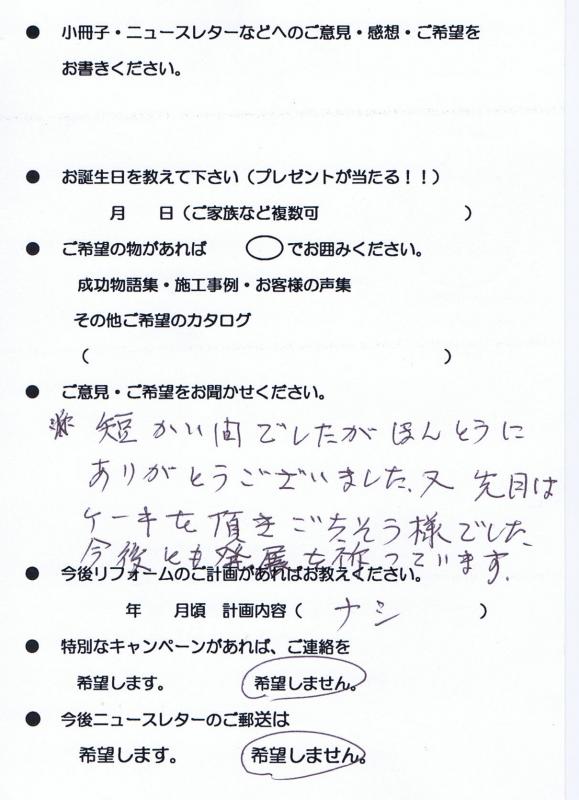 ● 小冊子・ニュースレターなどへのご意見・感想・ご希望を
お書きください。
● お誕生日を教えて下さい(プレゼントが当たる!!)
月 日(ご家族など複数可 )
● ご希望の物があれば ◯でお囲みください。
成功物語集・施工事例・お客様の声集
その他ご希望のカタログ
( )
● ご意見・ご希望をお聞かせください。
短かい間でしたがほんとうに
ありがとうございました。又 先日は
ケーキを頂きごちそう様でした。
今後とも発展を祈っています。
● 今後リフォームのご計画があればお教えください。
年 月頃 計画内容( ナシ )
● 特別なキャンペーンがあれば、ご連絡を
希望します。 希望しません。
● 今後ニュースレターのご郵送は
希望します。 希望しません。